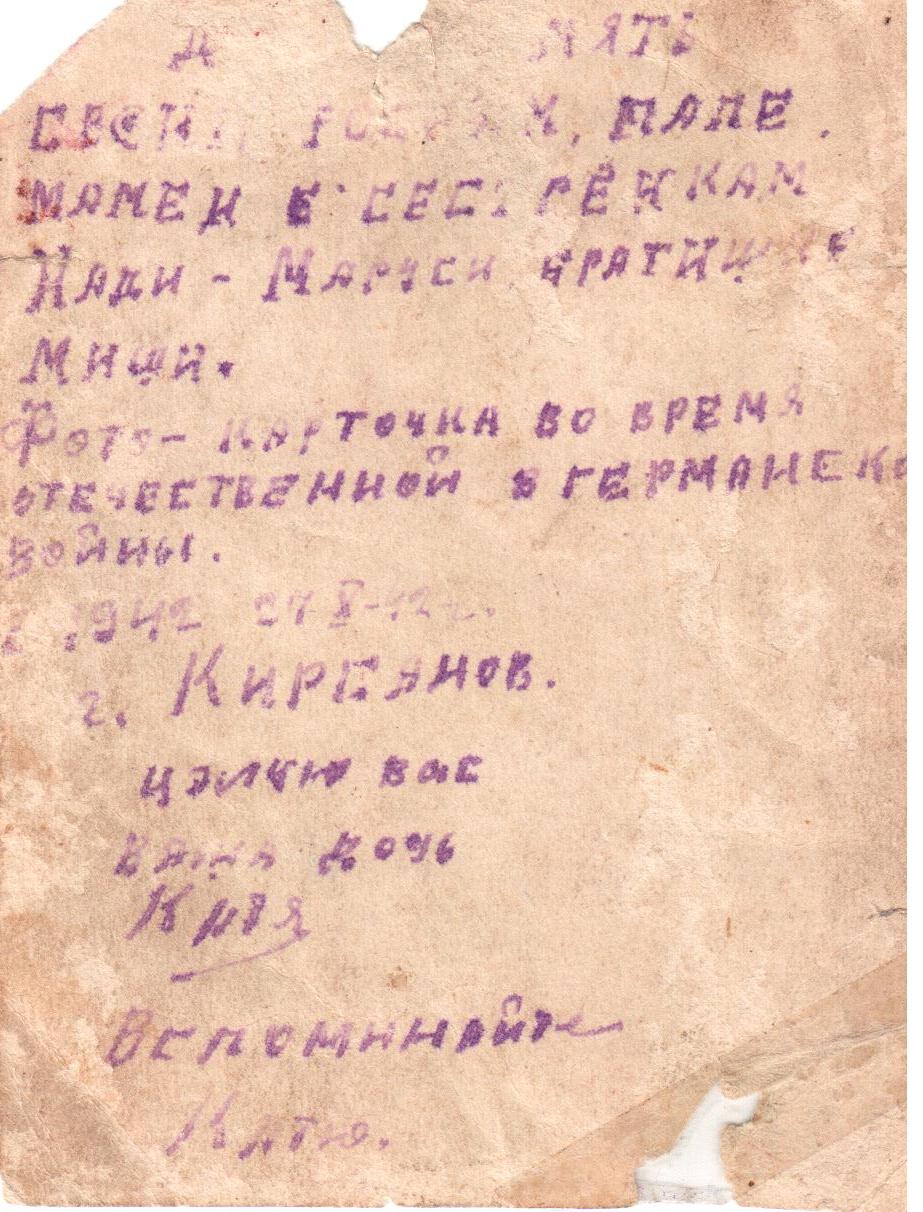 СВОИМ РОДНЫМ, ПАПЕ.
МАМЕИ Е СЕСТРЁНКАМ
НАДИ - МАРУСИ БРАТИШКЕ
МИШИ.
ФОТО- КАРТОЧКА ВО ВРЕМЯ
ОТЕЧЕСТВЕННОЙ В ГЕРМАНСКО
ВОЙНЫ.
1942 27 X-42г.
г. КИРСАНОВ.
ЦЭЛУЮ вас
ВАША дочь
Катя
Вспоминайте
Катю.